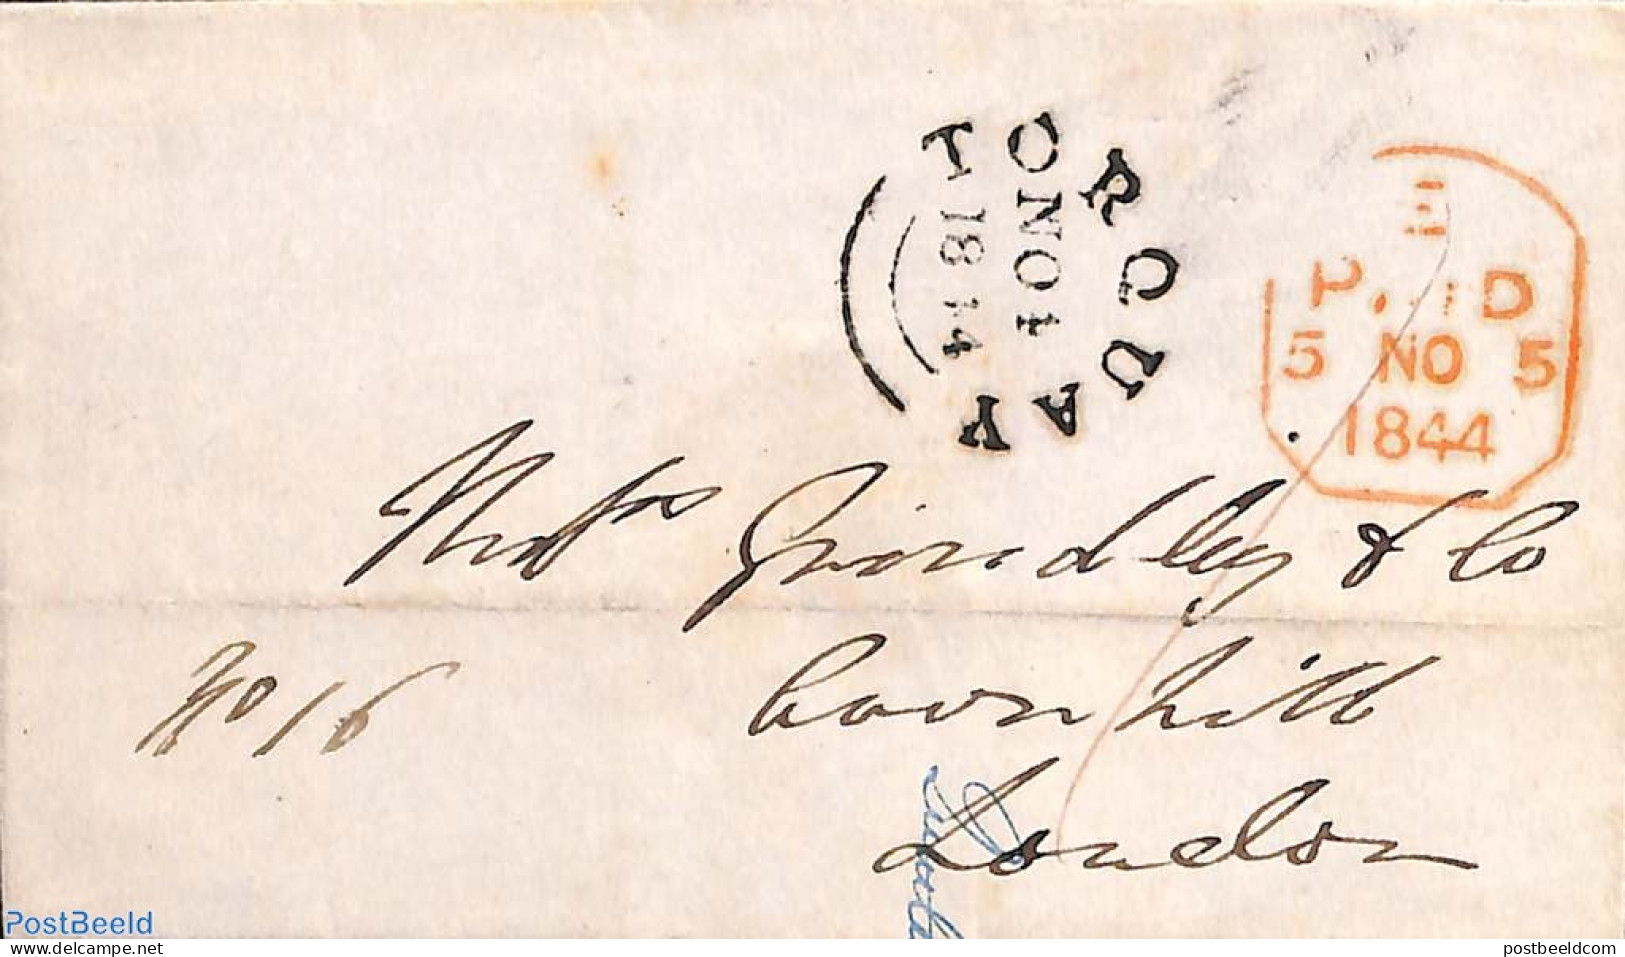 TORQUAY
NO 4
1844
E
PAID
5 NO 5
1844
Grindley & Co
No 16
Cornhill
London
PostBeeld
www.delcampe.net
postbeeldcom